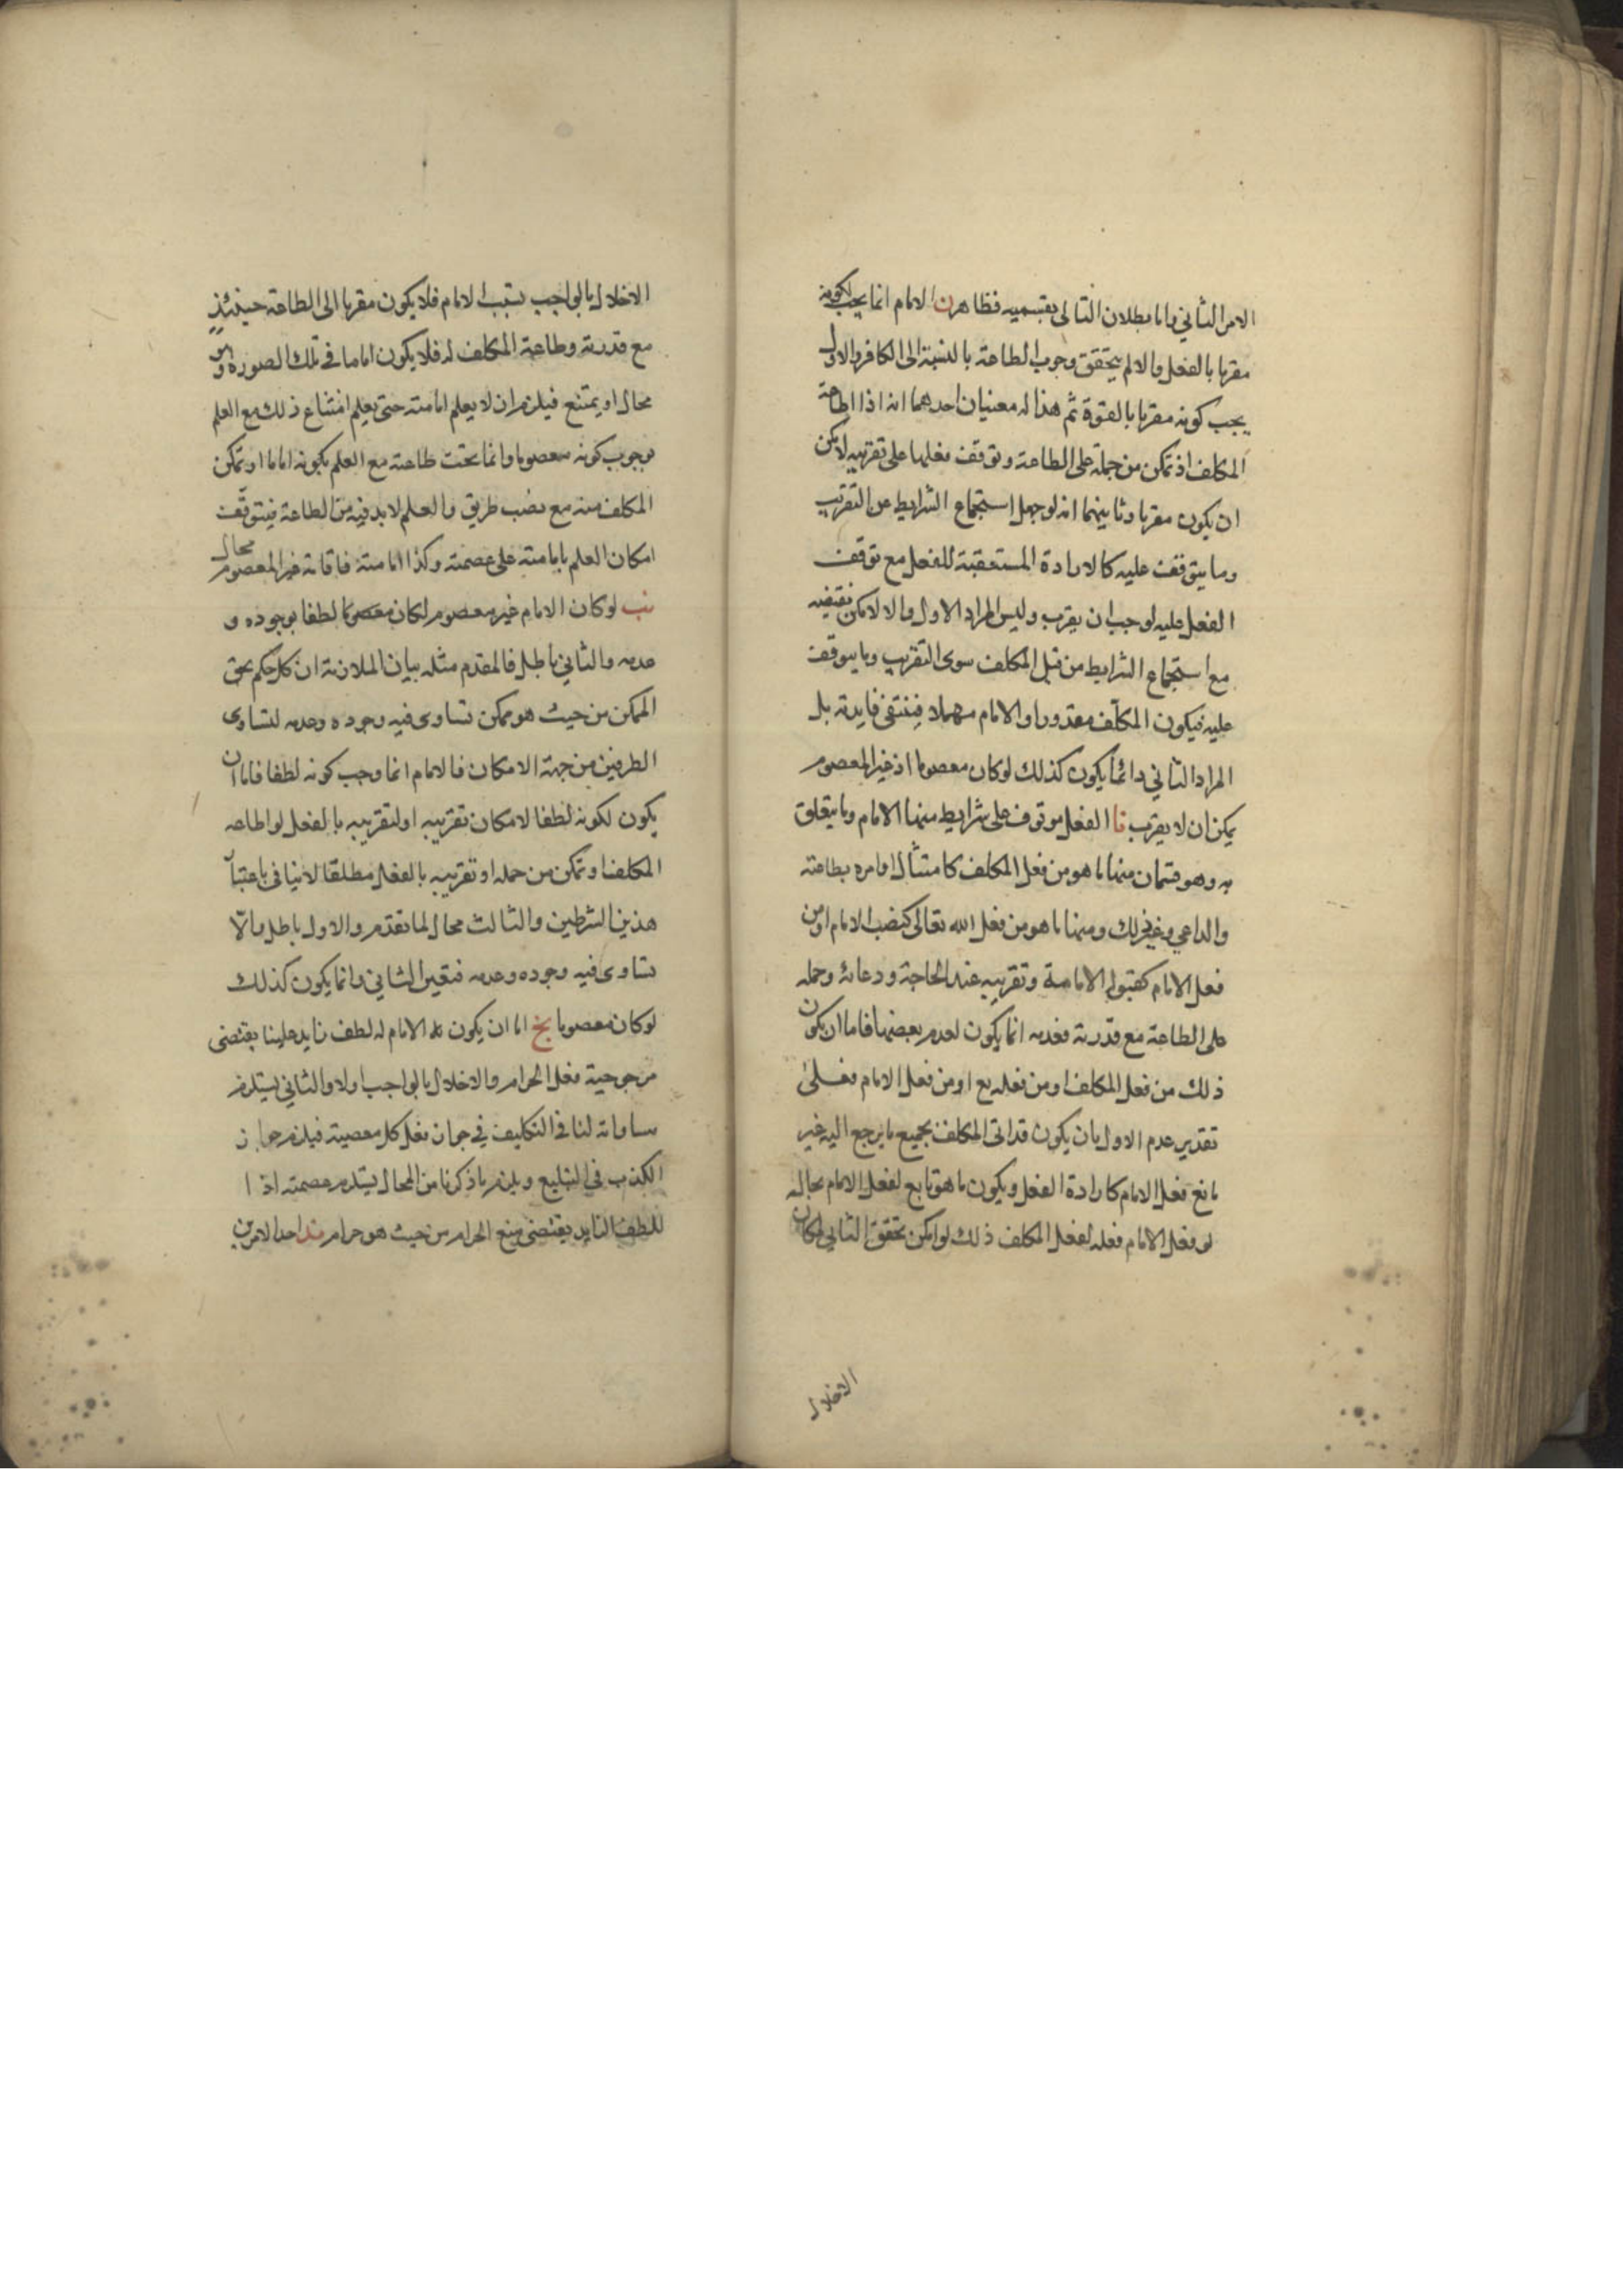 الامر الثاني واما بطلان التالى بقسميه فظاهر ن الامام انما يجب لكونه
مقربا بالفعل والا لم يتحقق وجوب الطاعة بالنسبة الى الكافر والاول
يجب كونه مقربا بالقوة ثم هذا له معنيان احدهما انه اذا اطاعة
المكلف اذ تمكن من حمله على الطاعة وتوقف فعلها على تقريبه لامكن
ان يكون مقربا وثانيهما انه لو جعل استجماع الشرايط عن التقريب
وما يتوقف عليه كالارادة المستعقبة للفعل مع توقف
الفعل عليه لوجب ان يقرب وليس المراد الاول والا لامكن نقيضه
مع استجماع الشرايط من قبل المكلف سوى التقريب وما يتوقف
عليه فيكون المكلف معذورا والامام مهملا فينتفى فايدته بل
المراد الثاني وانما يكون كذلك لو كان معصوما اذ غير المعصوم
يمكن ان لا يقرب نا الفعل موقوف على شرايط منها الامام وما يتعلق
به وهو قسمان منها ما هو من فعل المكلف كامتثال اوامره بطاعته
والداعي وغير ذلك ومنها ما هو من فعل الله تعالى كنصب الامام او من
فعل الامام كقبوله الامامة وتقريبه عند الحاجة ودعائه وحمله
على الطاعة مع قدرته فعدمه انما يكون لعدم بعضها فاما ان يكون
ذلك من فعل المكلف او من فعله تع او من فعل الامام فعلى
تقدير عدم الاول بان يكون قد اتى المكلف بجميع ما يرجع اليه غير
مانع فعل الامام كارادة الفعل ويكون ما هو تابع لفعل الامام بحاله
لو فعل الامام فعله لفعل المكلف ذلك لو امكن تحقق الثاني لكان
الاخلال
الاخلال بالواجب بسبب الامام فلا يكون مقربا الى الطاعة حينئذ
مع قدرته وطاعة المكلف له فلا يكون اماما في تلك الصورة وهو
محال او يمتنع فيلزم ان لا يعلم امامته حتى يعلم امتناع ذلك مع العلم
بوجوب كونه معصوما وانما يحتت طاعته مع العلم بكونه اماما او تمكن
المكلف منه مع نصب طريق والعلم لا بد فيه من الطاعة فيتوقف
امكان العلم بامامته على عصمته وكذا امامته فاقامة غير المعصوم محال
نب لو كان الامام غير معصوم لكان معصوما لطفا بوجوده و
عدمه والثاني باطل فالمقدم مثله بيان الملازمة ان كل حكم يحق
الممكن من حيث هو ممكن تساوى فيه وجوده وعدمه لتساوى
الطرفين من جهة الامكان فالامام انما وجب كونه لطفا فاما ان
يكون لكونه لطفا لامكان تقريبه او لتقريبه بالفعل لو اطاعه
المكلف او تمكن من حمله او تقريبه بالفعل مطلقا لا ينافى باعتبار
هذين الشرطين والثالث محال لما تقدم والاول باطل والا
تساوى فيه وجوده وعدمه فتعين الثاني وانما يكون كذلك
لو كان معصوما نج اما ان يكون الامام له لطف زايد علينا يقتضى
مرجوحية فعل الحرام والاخلال بالواجب اولا والثاني يستلزم
مساواته لنا في التكليف في جواز فعل كل معصية فيلزم جواز
الكذب في التبليغ ويلزم ما ذكرنا من المحال يستلزم عصمته اذ ا
للطف الزايد يقتضى منع الحرام من حيث هو حرام ند احد الامرين